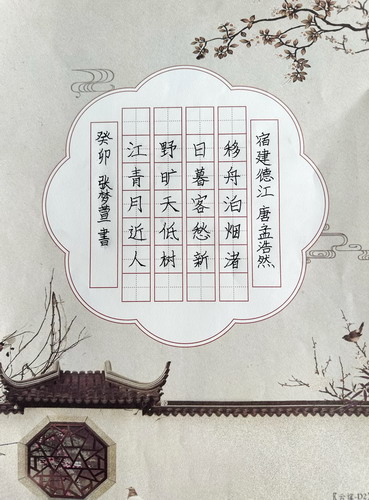 宿建德江 唐孟浩然
移舟泊烟渚
日暮客愁新
野旷天低树
江青月近人
癸卯 张梦萱 書